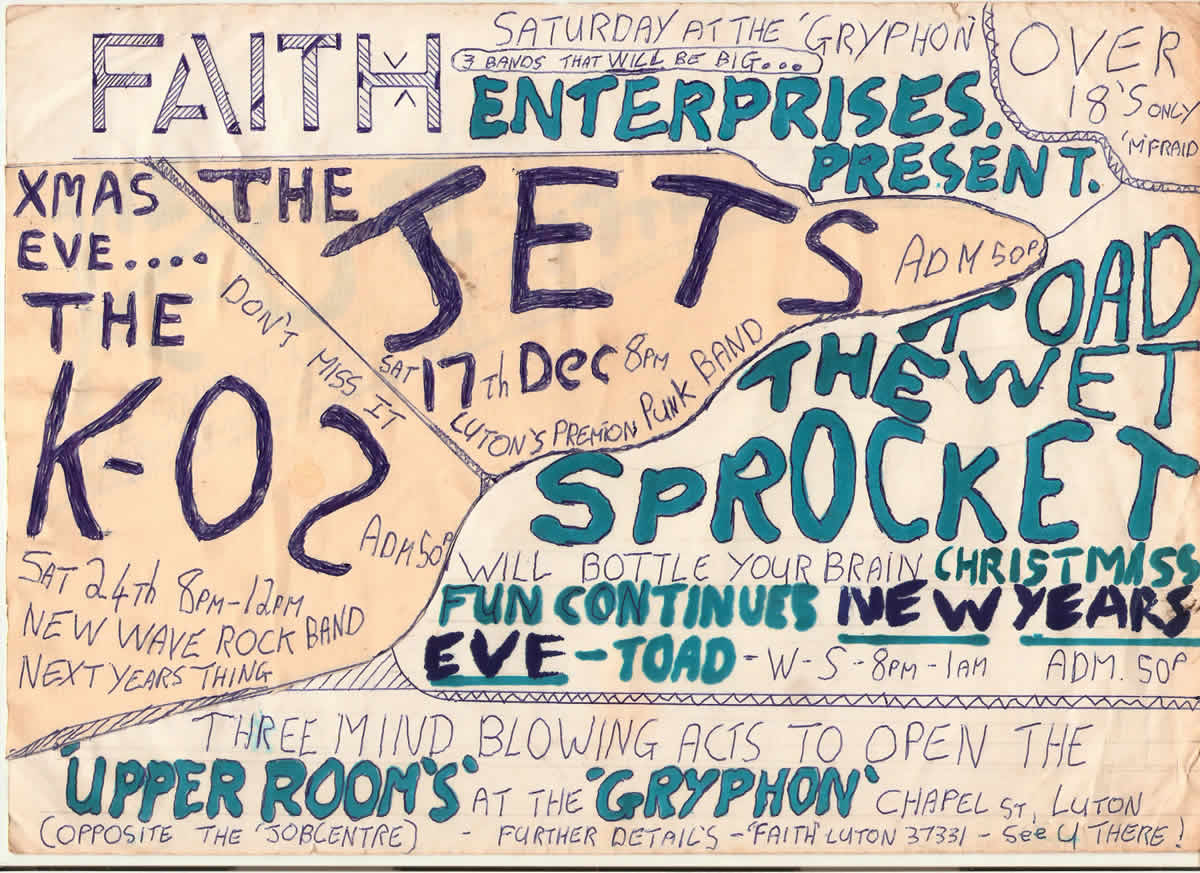 FAITH
SATURDAY AT THE 'GRYPHON'
3 BANDS THAT WILL BE BIG...
ENTERPRISES.
PRESENT.
OVER
18'S ONLY
'M'FRAID
XMAS
EVE....
THE
K-OS
ADM 50P
SAT 24th 8PM-12PM
NEW WAVE ROCK BAND
NEXT YEARS THING
DON'T MISS IT
THE JETS
ADM 50P
SAT 17th Dec 8PM
LUTON'S PREMION PUNK BAND
TOAD
THE WET
SPROCKET
WILL BOTTLE YOUR BRAIN CHRISTMASS
FUN CONTINUES NEW YEARS
EVE - TOAD - W - S - 8PM - 1AM ADM. 50P
THREE MIND BLOWING ACTS TO OPEN THE
'UPPER ROOM'S' AT THE 'GRYPHON' CHAPEL ST, LUTON
(OPPOSITE THE 'JOBCENTRE) - FURTHER DETAIL'S - 'FAITH' LUTON 37331 - See U THERE!